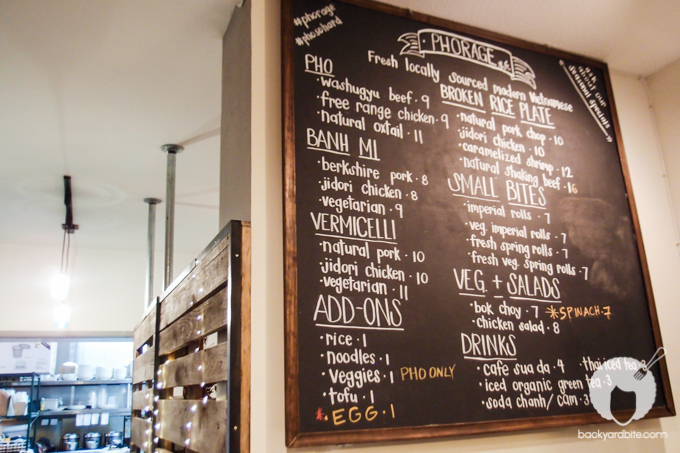 #phorage
#phosohard
PHORAGE
Fresh locally sourced modern Vietnamese
ask
about our
seasonal specials
PHO
• Washugyu beef • 9
• free range chicken • 9
• natural oxtail • 11
BANH MI
• berkshire pork • 8
• jidori chicken • 8
• vegetarian • 9
VERMICELLI
• natural pork • 10
• jidori chicken • 10
• vegetarian • 11
ADD-ONS
• rice • 1
• noodles • 1
• veggies • 1 PHO ONLY
• tofu • 1
* • EGG • 1
BROKEN RICE PLATE
• natural pork chop • 10
• jidori chicken • 10
• caramelized shrimp • 12
• natural shaking beef • 16
SMALL BITES
• imperial rolls • 7
• veg. imperial rolls • 7
• fresh spring rolls • 7
• fresh veg. spring rolls • 7
VEG. + SALADS
• bok choy • 7 * SPINACH • 7
• chicken salad • 8
DRINKS
• cafe sua da • 4 • thai iced tea •
• iced organic green tea • 3
• soda chanh / cam • 3
backyardbite.com